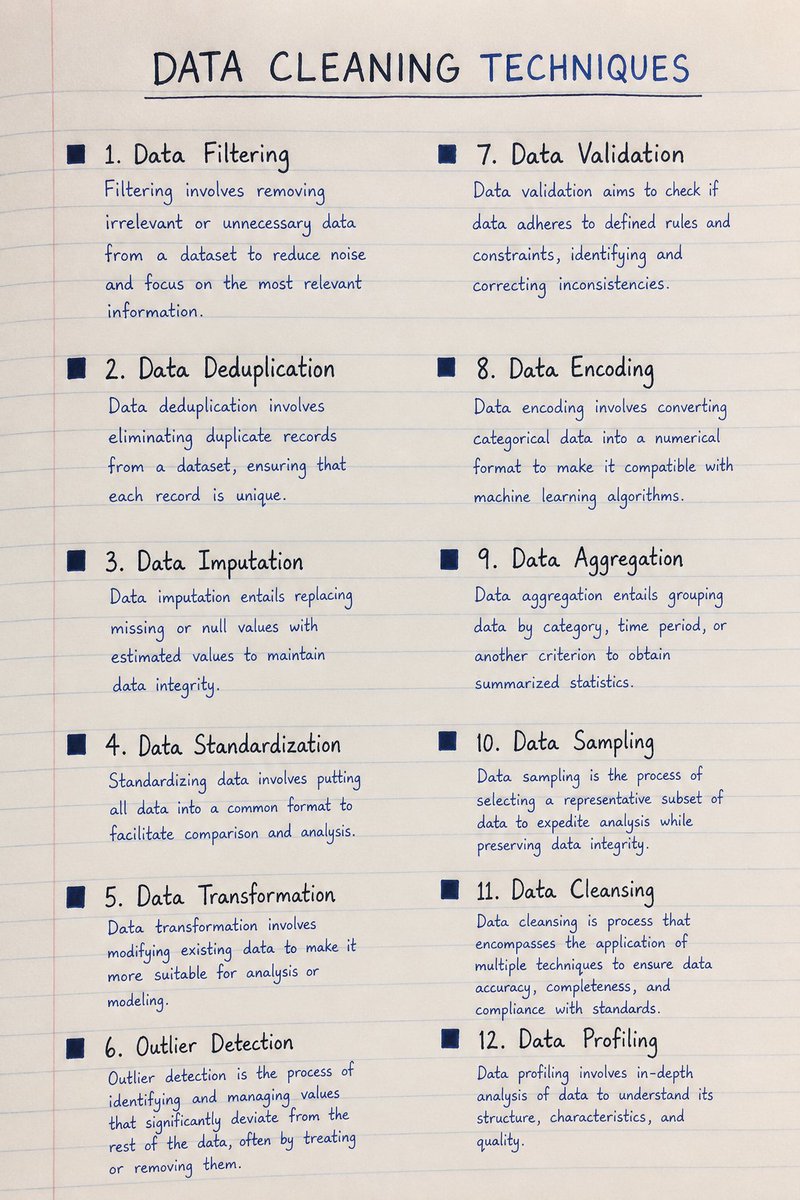 DATA CLEANING TECHNIQUES
1. Data Filtering
Filtering involves removing
irrelevant or unnecessary data
from a dataset to reduce noise
and focus on the most relevant
information.
2. Data Deduplication
Data deduplication involves
eliminating duplicate records
from a dataset, ensuring that
each record is unique.
3. Data Imputation
Data imputation entails replacing
missing or null values with
estimated values to maintain
data integrity.
4. Data Standardization
Standardizing data involves putting
all data into a common format to
facilitate comparison and analysis.
5. Data Transformation
Data transformation involves
modifying existing data to make it
more suitable for analysis or
modeling.
6. Outlier Detection
Outlier detection is the process of
identifying and managing values
that significantly deviate from the
rest of the data, often by treating
or removing them.
7. Data Validation
Data validation aims to check if
data adheres to defined rules and
constraints, identifying and
correcting inconsistencies.
8. Data Encoding
Data encoding involves converting
categorical data into a numerical
format to make it compatible with
machine learning algorithms.
9. Data Aggregation
Data aggregation entails grouping
data by category, time period, or
another criterion to obtain
summarized statistics.
10. Data Sampling
Data sampling is the process of
selecting a representative subset of
data to expedite analysis while
preserving data integrity.
11. Data Cleansing
Data cleansing is process that
encompasses the application of
multiple techniques to ensure data
accuracy, completeness, and
compliance with standards.
12. Data Profiling
Data profiling involves in-depth
analysis of data to understand its
structure, characteristics, and
quality.